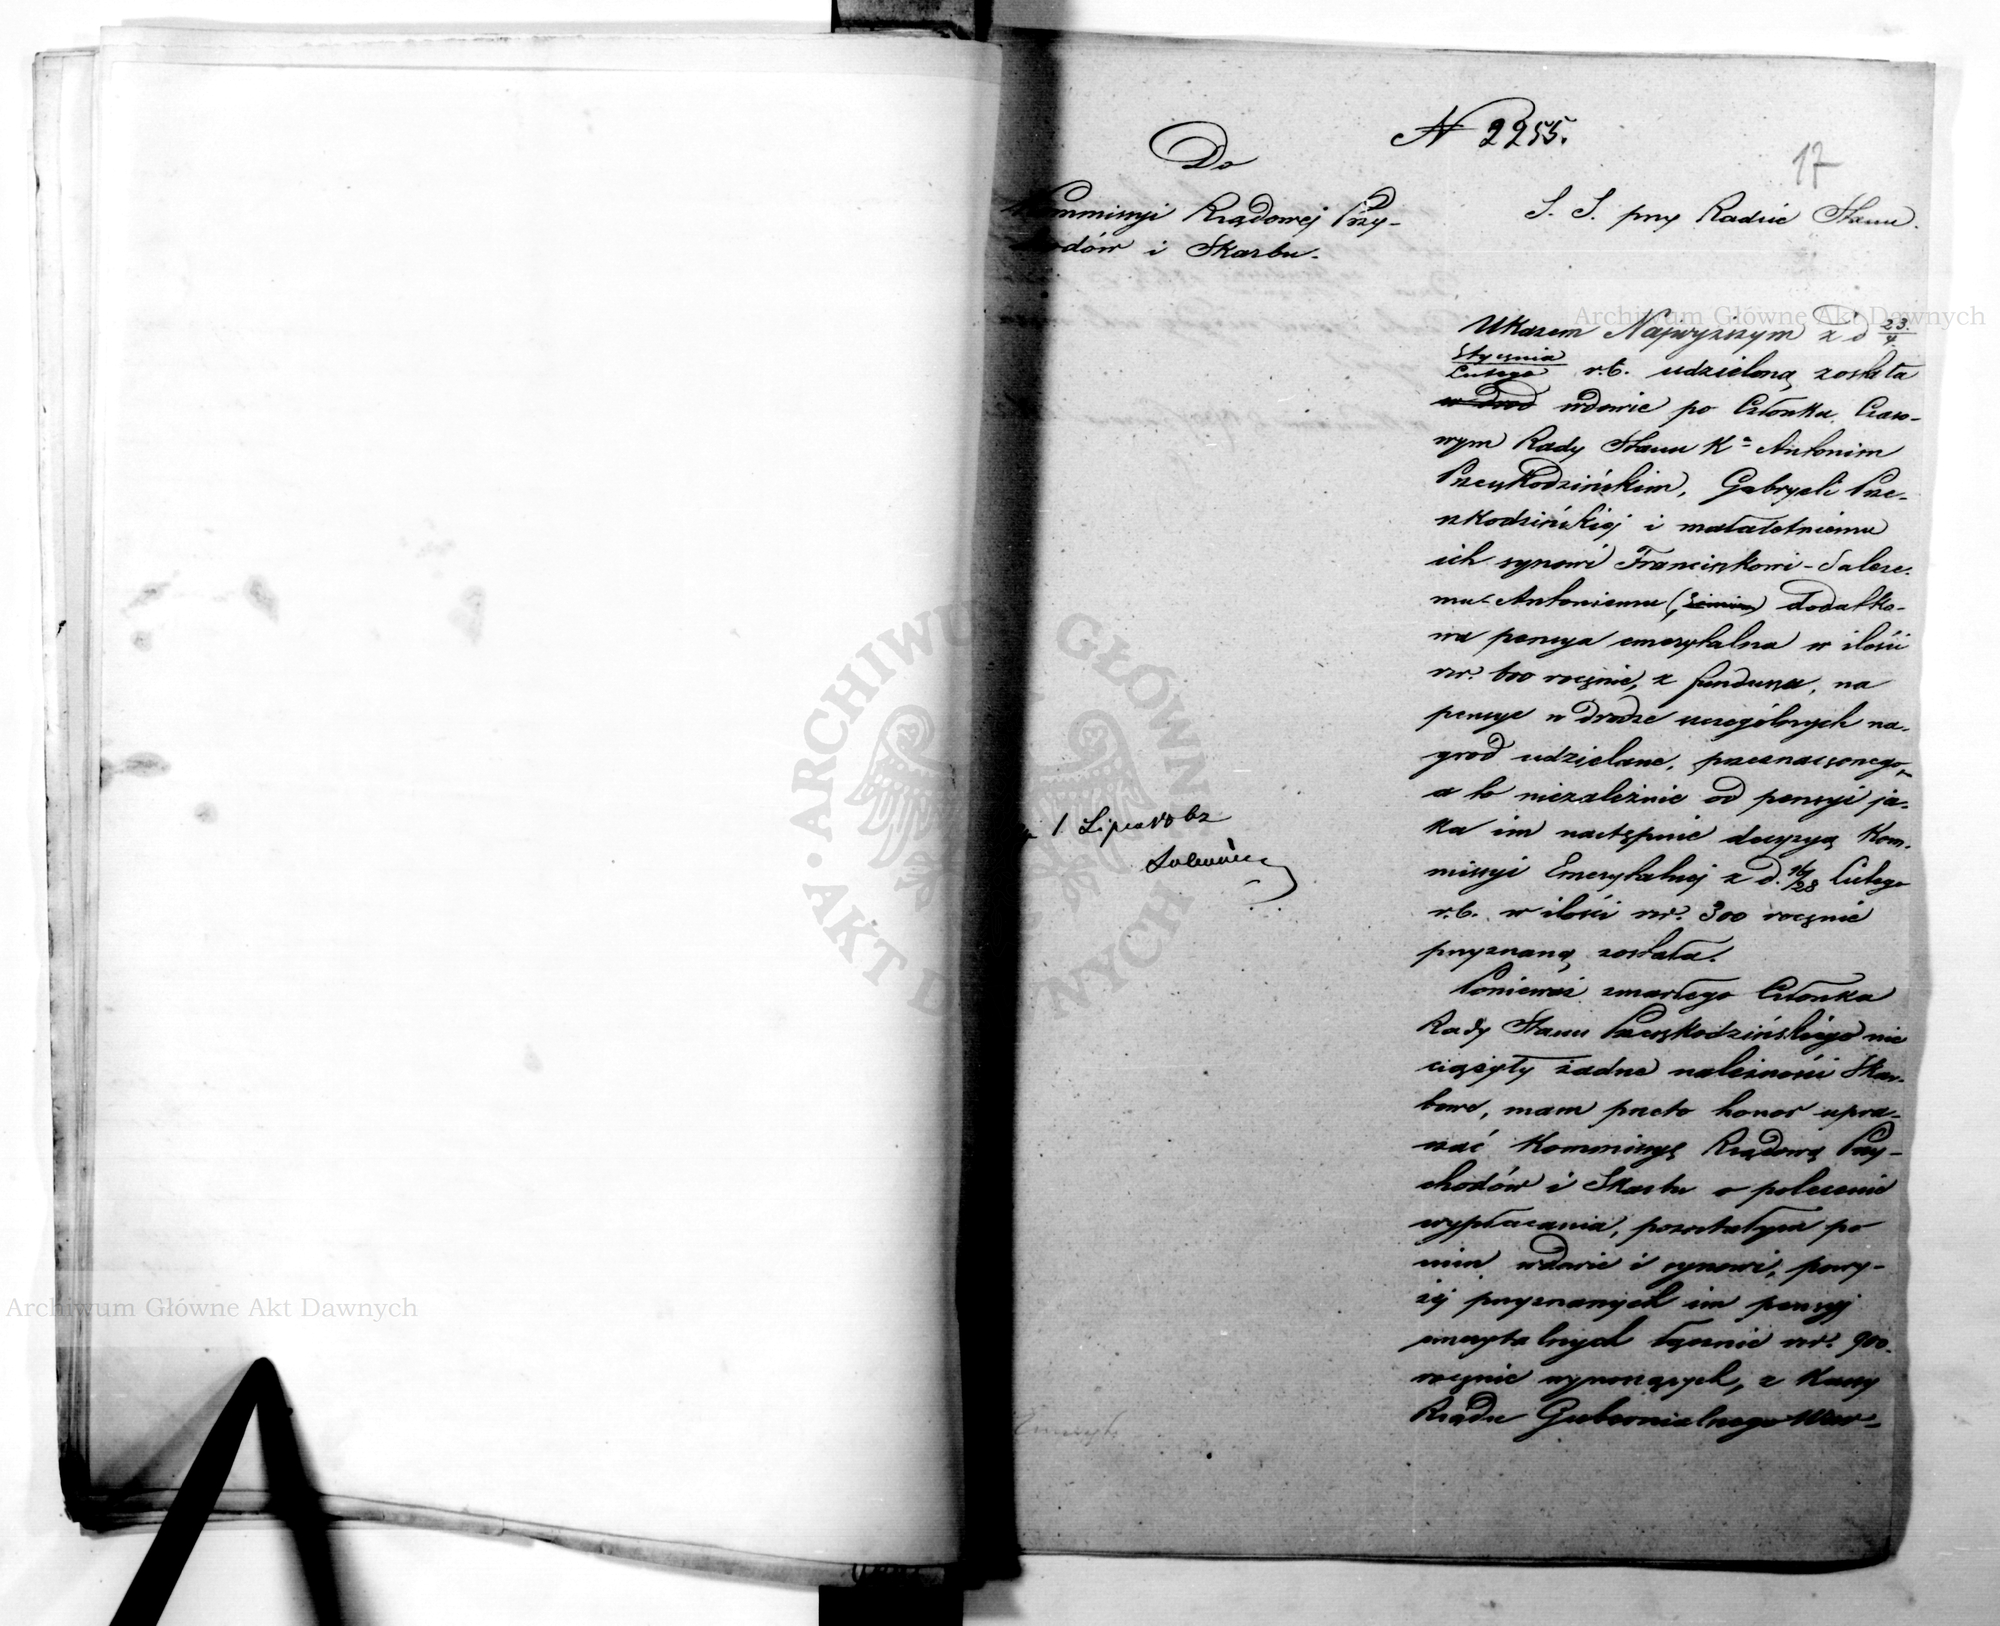 N 2255.
17
Do
Kommissyi Rządowej Przy-
chodów i Skarbu.
S. S. przy Radzie Stanu.
Ukazem Najwyższym z d 23./4.
Stycznia/Lutego r.b. udzieloną została
wdowie po Członku Czaso-
wym Rady Stanu K⁠a Antonim
Przeszkodzińskim, Gabryeli Prze-
szkodzińskiej i małoletniemu
ich synowi Franciszkowi-Saleze-
mu-Antoniemu dodatko-
wa pensya emerytalna w ilości
rsr. 600 rocznie, z funduszu, na
pensye w drodze szczególnych na-
gród udzielane, przeznaczonego,
a to niezależnie od pensyi ja-
ka im następnie decyzyą Kom-
missyi Emerytalnej z d. 16/28 Lutego
r.b. w ilości rsr. 300 rocznie
przyznaną została.
Ponieważ zmarłego Członka
Rady Stanu Przeszkodzińskiego nie
ciążyły żadne należności Skar-
bowe, mam przeto honor upra-
szać Kommissyę Rządową Przy-
chodów i Skarbu o polecenie
wypłacania, pozostałym po
nim wdowie i synowi, powy-
żej przyznanych im pensyj
emerytalnych łącznie rsr. 900.
rocznie wynoszących, z Kassy
Rządu Gubernialnego War-
1 Lipca 1862
Archiwum Główne Akt Dawnych
Archiwum Główne Akt Dawnych
ARCHIWUM GŁÓWNE AKT DAWNYCH